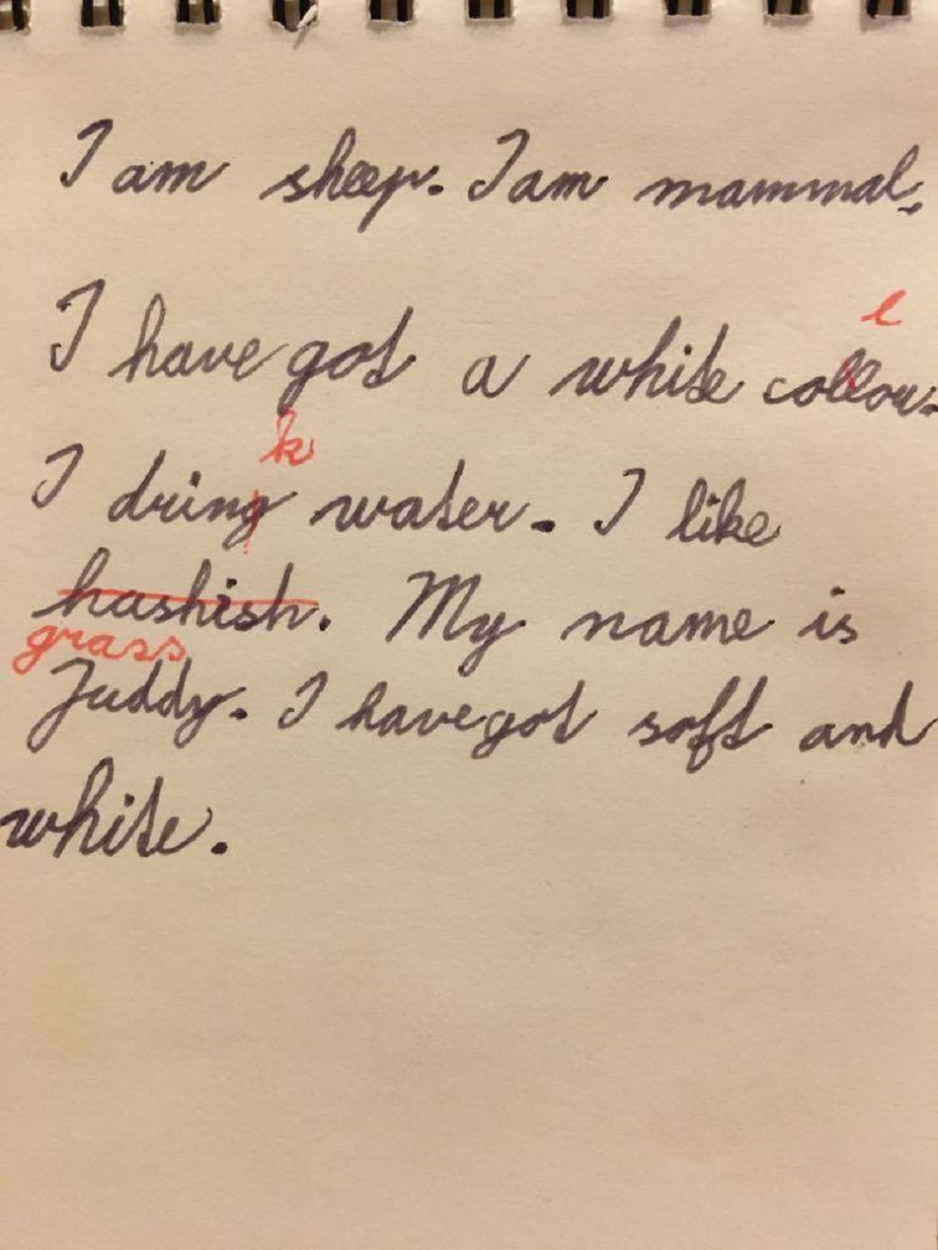 I am sheep. I am mammal.
l
I have got a white collour.
k
I dring water. I like
hashish. My name is
grass
Juddy. I have got soft and
white.